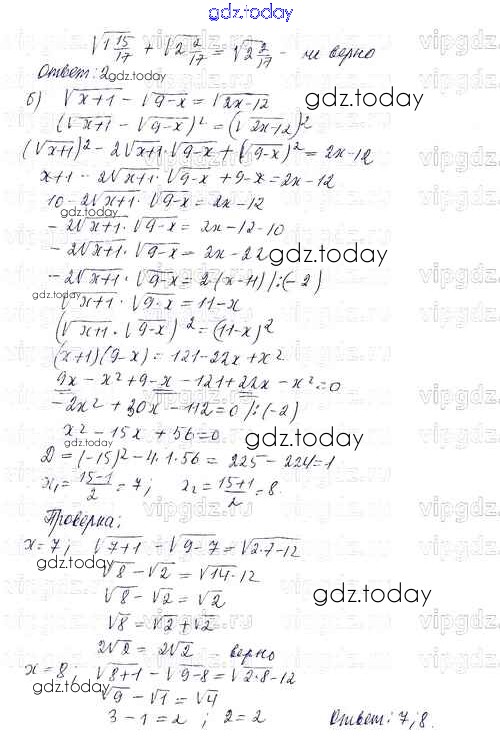 gdz.today
√1 15/17 + √2 2/17 = √2 2/17 - не верно
Ответ: 2
gdz.today
б) √x+1 - √9-x = √2x-12
gdz.today
(√x+1 - √9-x)² = (√2x-12)²
(√x+1)² - 2√x+1 · √9-x + (√9-x)² = 2x-12
x+1 - 2√x+1 · √9-x + 9-x = 2x-12
10 - 2√x+1 · √9-x = 2x-12
gdz.today
- 2√x+1 · √9-x = 2x-12-10
- 2√x+1 · √9-x = 2x-22
gdz.today
- 2√x+1 · √9-x = 2(x-11) /:(-2)
gdz.today
√x+1 · √9-x = 11-x
(√x+1 · √9-x)² = (11-x)²
(x+1)(9-x) = 121-22x+x²
9x - x² + 9 - x - 121 + 22x - x² = 0
- 2x² + 30x - 112 = 0 /:(-2)
x² - 15x + 56 = 0
gdz.today
gdz.today
D = (-15)² - 4·1·56 = 225 - 224 = 1
x₁ = 15-1/2 = 7; x₂ = 15+1/2 = 8.
Проверка;
x=7; √7+1 - √9-7 = √2·7-12
√8 - √2 = √14-12
√8 - √2 = √2
gdz.today
gdz.today
√8 = √2 + √2
2√2 = 2√2 верно
x=8; √8+1 - √9-8 = √2·8-12
gdz.today
√9 - √1 = √4
3 - 1 = 2 ; 2 = 2 Ответ: 7; 8.